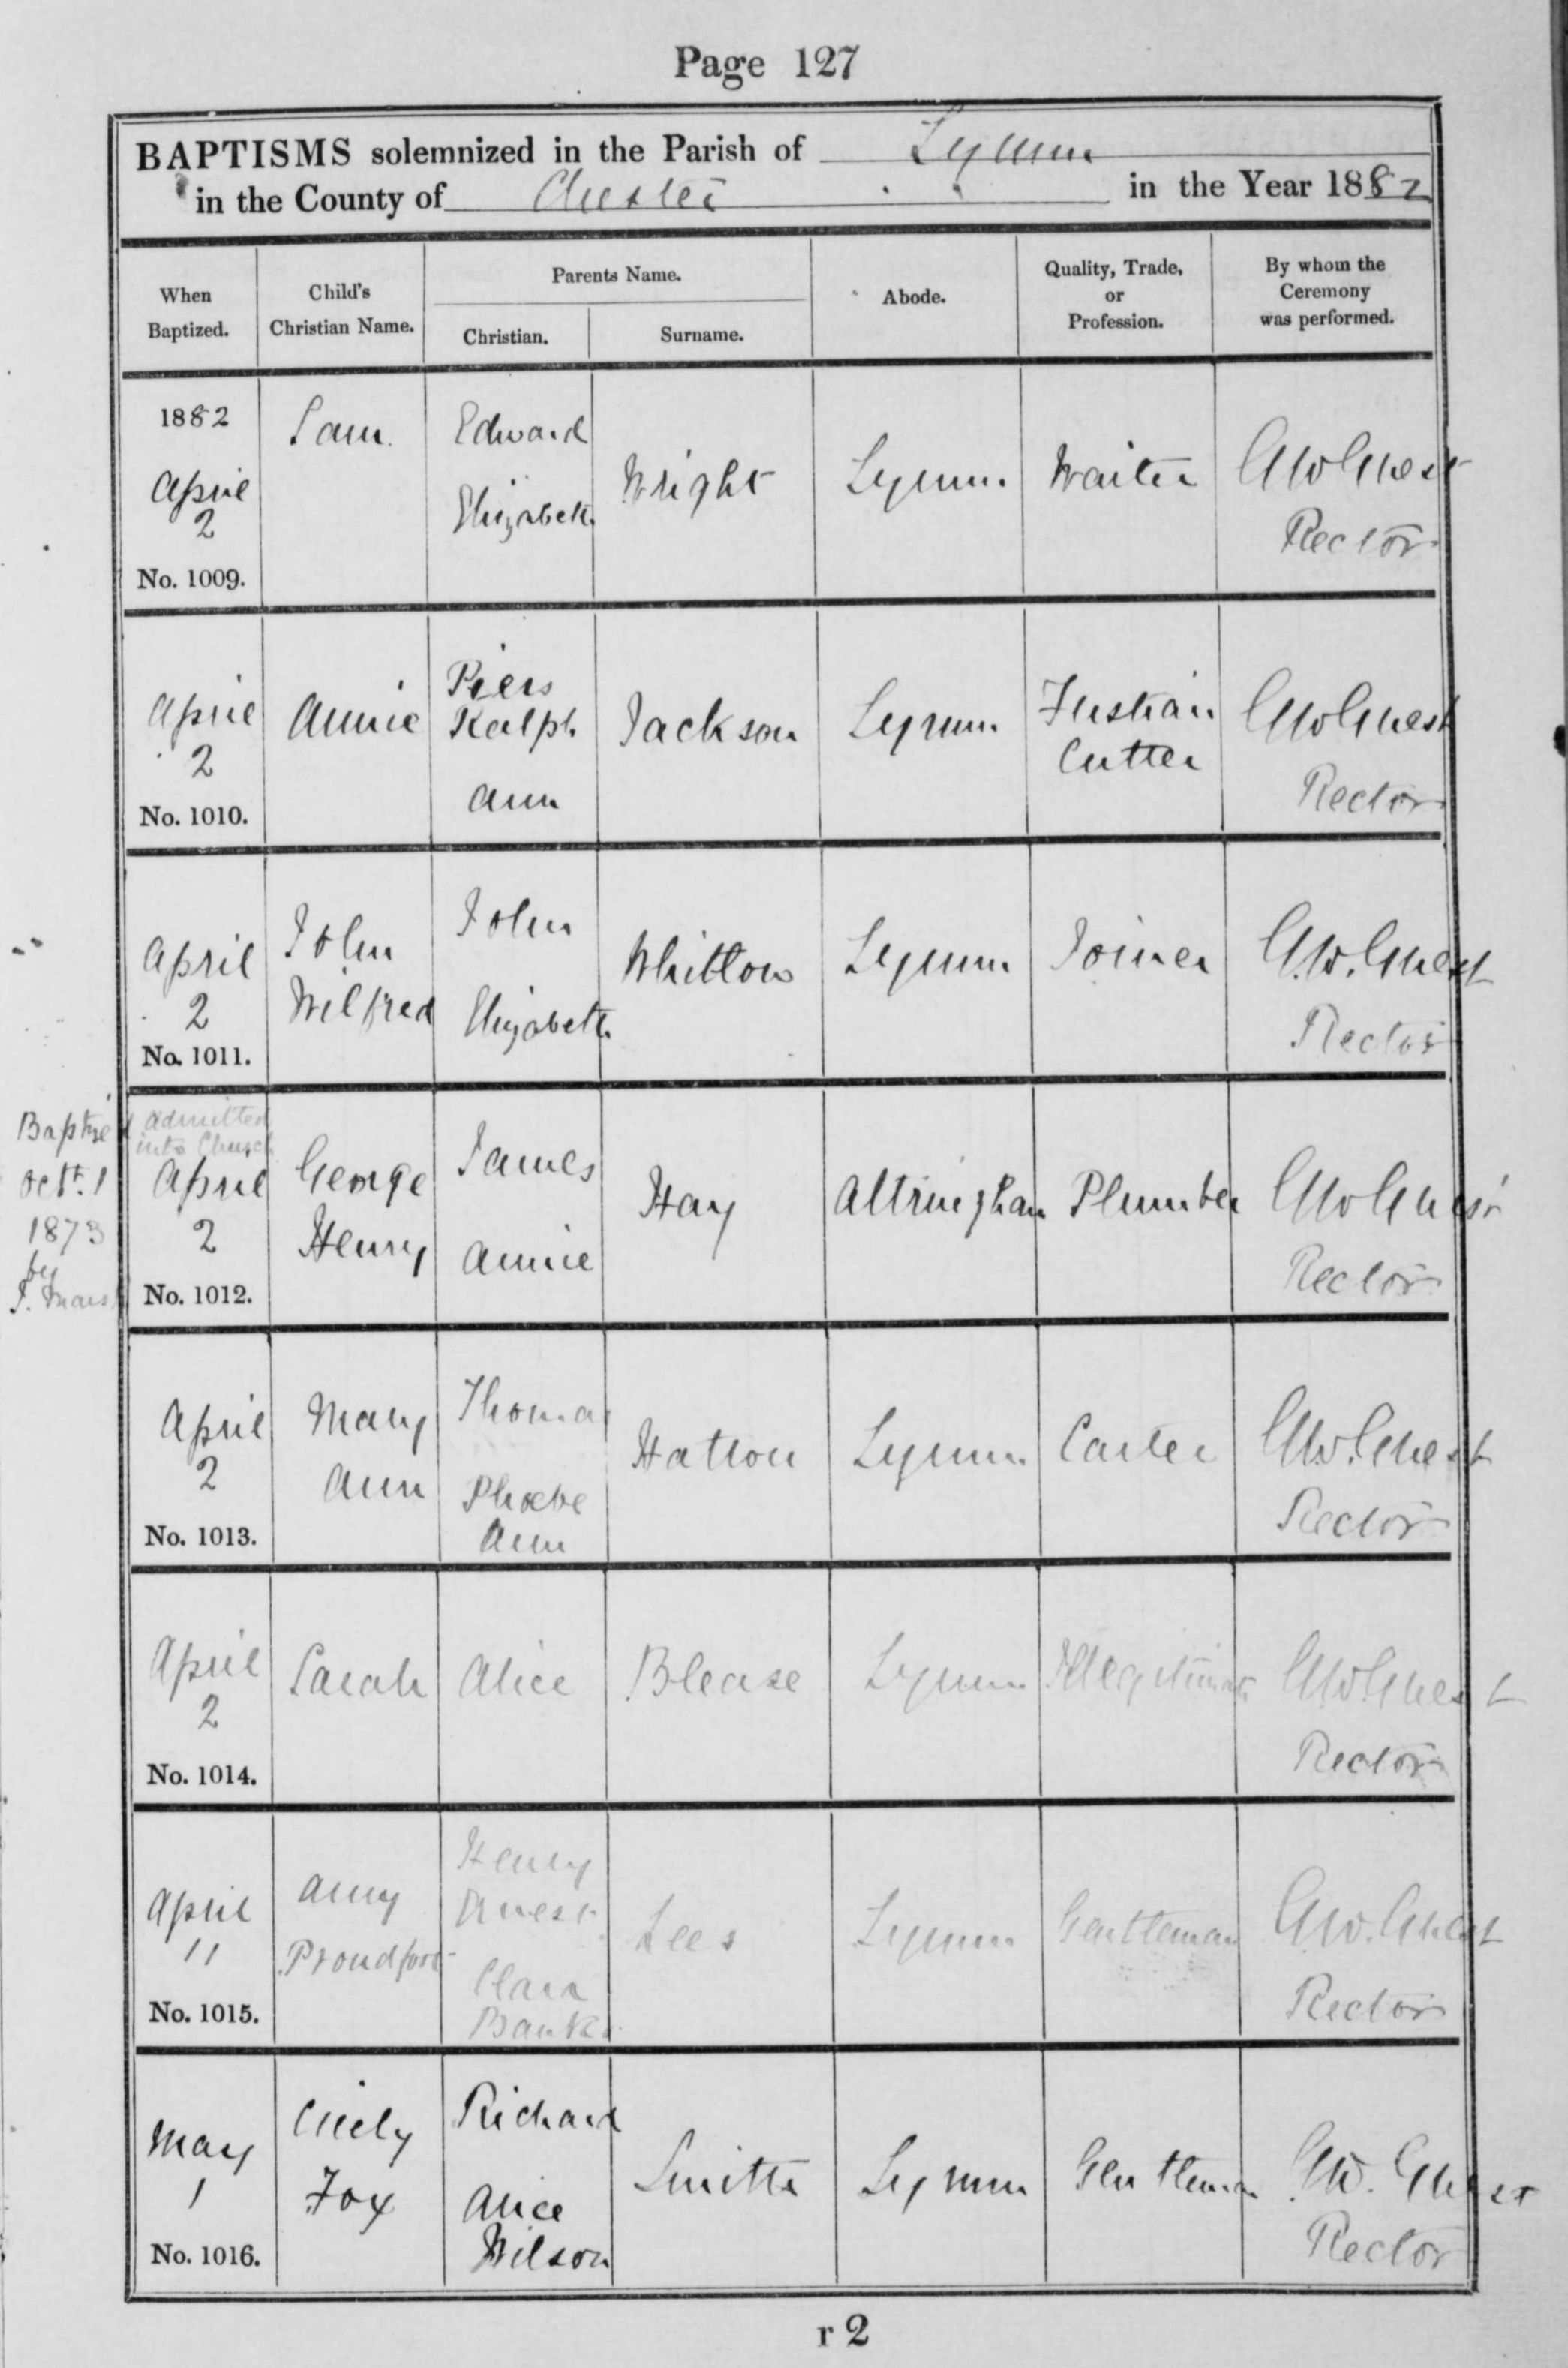 Page 127
BAPTISMS solemnized in the Parish of Lymm
in the County of Chester in the Year 1882
When Baptized.
Child's Christian Name.
Parents Name.
Christian.
Surname.
Abode.
Quality, Trade, or Profession.
By whom the Ceremony was performed.
1882
April
2
No. 1009.
Sam.
Edward
Elizabeth
Wright
Lymm
Waiter
GW Guest
Rector
April
2
No. 1010.
Annie
Piers
Ralph
Ann
Jackson
Lymm
Fustian
Cutter
GW Guest
Rector
April
2
No. 1011.
John
Wilfred
John
Elizabeth
Whittow
Lymm
Joiner
G.W. Guest
Rector
Baptized
Octr. 1
1873
by
admitted
into Church
April
2
No. 1012.
George
Henry
James
Annie
Hay
Altringham
Plumber
GW Guest
Rector
April
2
No. 1013.
Mary
Ann
Thomas
Phoebe
Ann
Hatton
Lymm
Carter
GW. Guest
Rector
April
2
No. 1014.
Sarah
Alice
Blease
Lymm
Illegitimate
GW. Guest
Rector
April
11
No. 1015.
Amy
Proudfoot
Henry
Guest
Clara
Banks
Lees
Lymm
Gentleman
G.W. Guest
Rector
May
1
No. 1016.
Cicely
Fox
Richard
Alice
Wilson
Smith
Lymm
Gentleman
G.W. Guest
Rector
r 2